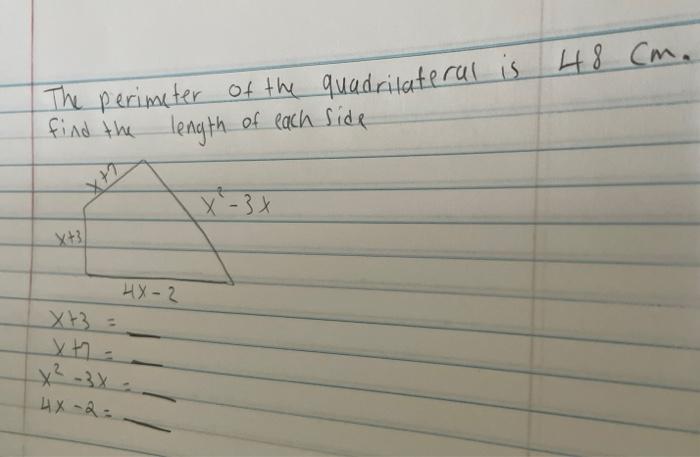 The perimeter of the quadrilateral is 48 Cm.
find the length of each side
x+7
x²-3x
x+3
4x-2
x+3 = __
x+7 = __
x²-3x = __
4x-2 = __